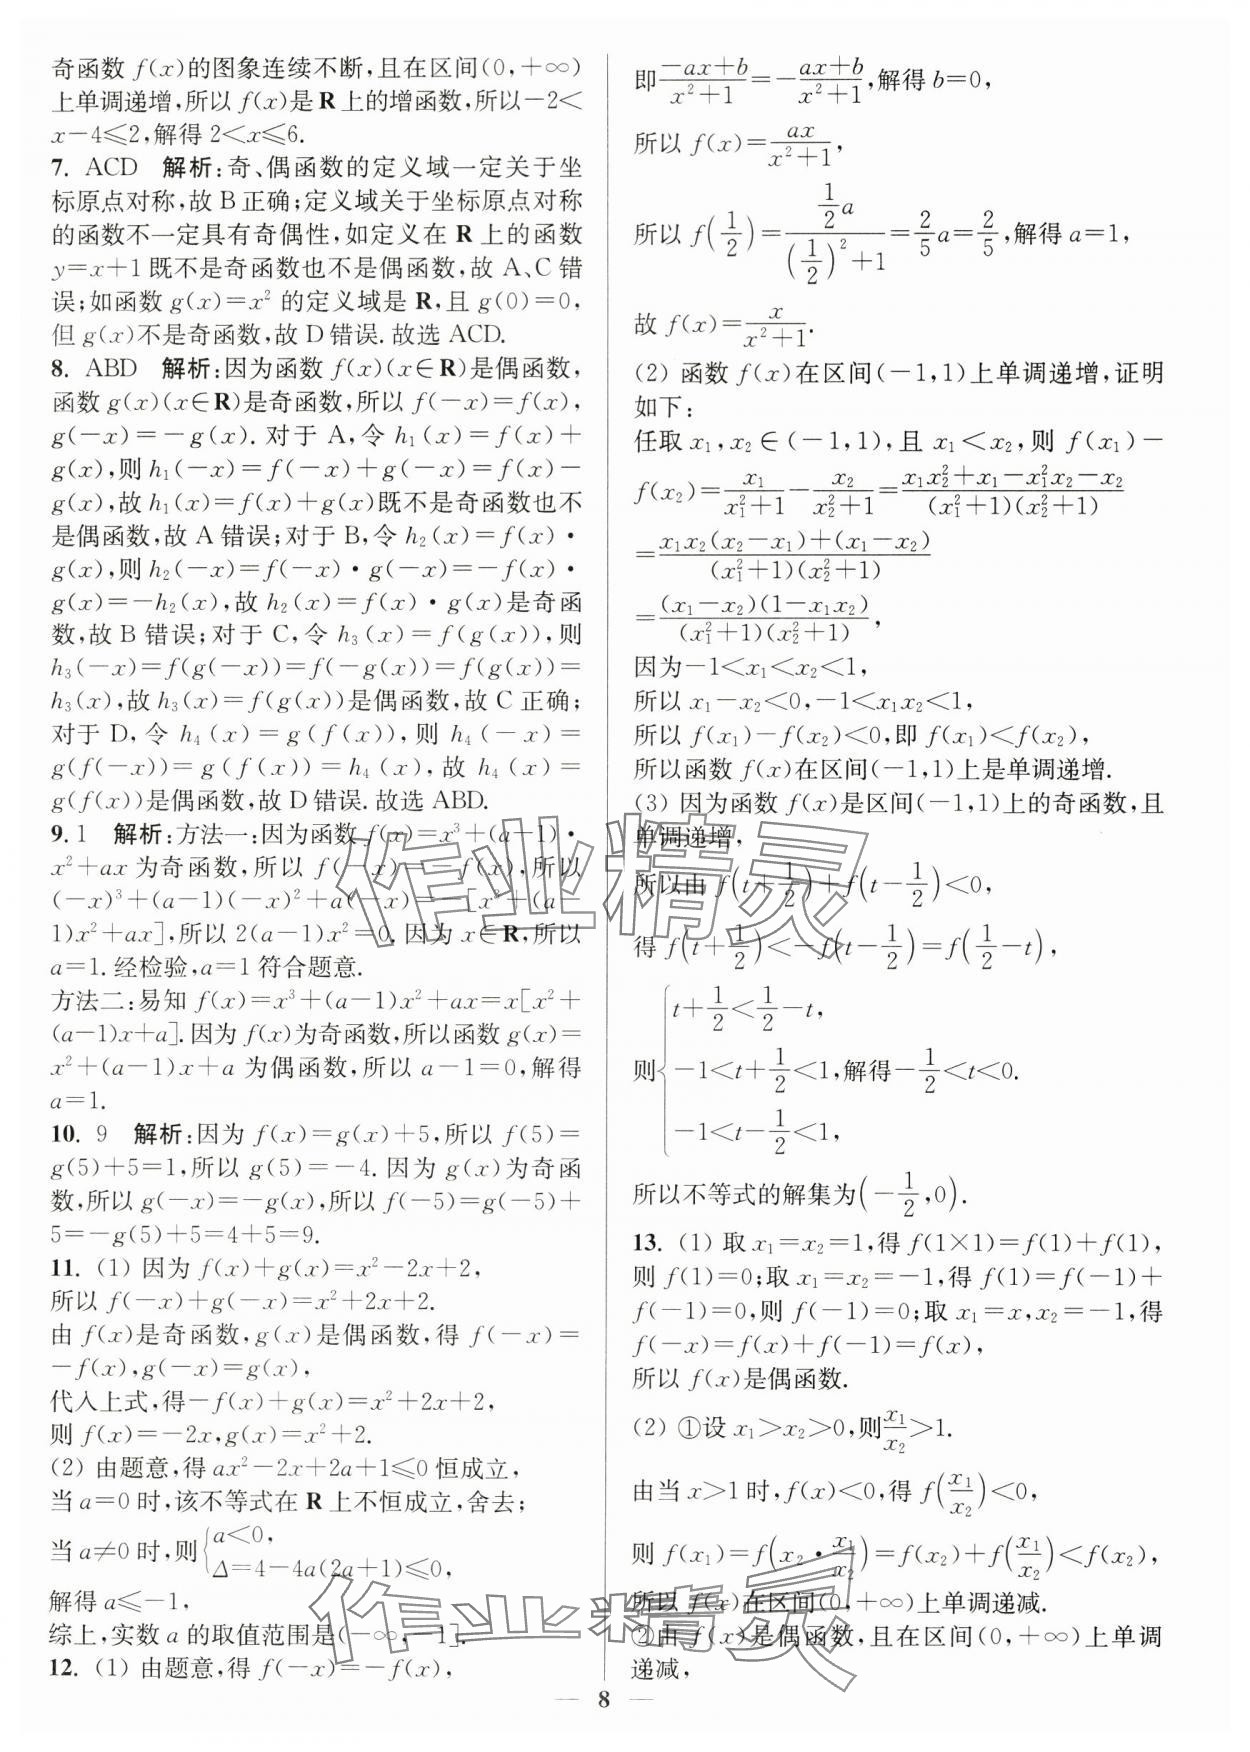 奇函数 f(x)的图象连续不断,且在区间(0,+∞)
上单调递增,所以 f(x)是 R 上的增函数,所以−2<
x−4≤2,解得 2<x≤6.
7. ACD 解析:奇、偶函数的定义域一定关于坐
标原点对称,故 B 正确;定义域关于坐标原点对称
的函数不一定具有奇偶性,如定义在 R 上的函数
y=x+1 既不是奇函数也不是偶函数,故 A、C 错
误;如函数 g(x)=x² 的定义域是 R,且 g(0)=0,
但 g(x)不是奇函数,故 D 错误.故选 ACD.
8. ABD 解析:因为函数 f(x)(x∈R)是偶函数,
函数 g(x)(x∈R)是奇函数,所以 f(−x)=f(x),
g(−x)=−g(x). 对于 A,令 h₁(x)=f(x)+
g(x),则 h₁(−x)=f(−x)+g(−x)=f(x)−
g(x),故 h₁(x)=f(x)+g(x)既不是奇函数也不
是偶函数,故 A 错误;对于 B,令 h₂(x)=f(x)·
g(x),则 h₂(−x)=f(−x)·g(−x)=−f(x)·
g(x)=−h₂(x),故 h₂(x)=f(x)·g(x)是奇函
数,故 B 错误;对于 C,令 h₃(x)=f(g(x)),则
h₃(−x)=f(g(−x))=f(−g(x))=f(g(x))=
h₃(x),故 h₃(x)=f(g(x))是偶函数,故 C 正确;
对于 D,令 h₄(x)=g(f(x)),则 h₄(−x)=
g(f(−x))=g(f(x))=h₄(x),故 h₄(x)=
g(f(x))是偶函数,故 D 错误.故选 ABD.
9. 1 解析:方法一:因为函数 f(x)=x³+(a−1)·
x²+ax 为奇函数,所以 f(−x)=−f(x),所以
(−x)³+(a−1)(−x)²+a(−x)=−[x³+(a−
1)x²+ax],所以 2(a−1)x²=0.因为 x∈R,所以
a=1.经检验,a=1 符合题意.
方法二:易知 f(x)=x³+(a−1)x²+ax=x[x²+
(a−1)x+a].因为 f(x)为奇函数,所以函数 g(x)=
x²+(a−1)x+a 为偶函数,所以 a−1=0,解得
a=1.
10. 9 解析:因为 f(x)=g(x)+5,所以 f(5)=
g(5)+5=1,所以 g(5)=−4.因为 g(x)为奇函
数,所以 g(−x)=−g(x),所以 f(−5)=g(−5)+
5=−g(5)+5=4+5=9.
11. (1) 因为 f(x)+g(x)=x²−2x+2,
所以 f(−x)+g(−x)=x²+2x+2.
由 f(x)是奇函数,g(x)是偶函数,得 f(−x)=
−f(x),g(−x)=g(x),
代入上式,得−f(x)+g(x)=x²+2x+2,
则 f(x)=−2x,g(x)=x²+2.
(2) 由题意,得 ax²−2x+2a+1≤0 恒成立,
当 a=0 时,该不等式在 R 上不恒成立,舍去;
当 a≠0 时,则{a<0, Δ=4−4a(2a+1)≤0,
解得 a≤−1,
综上,实数 a 的取值范围是(−∞,−1].
12. (1) 由题意,得 f(−x)=−f(x),
即(−ax+b)/(x²+1)=−(ax+b)/(x²+1),解得 b=0,
所以 f(x)=ax/(x²+1),
所以 f(1/2)=(1/2 a)/((1/2)²+1)=2/5 a=2/5,解得 a=1,
故 f(x)=x/(x²+1).
(2) 函数 f(x)在区间(−1,1)上单调递增,证明
如下:
任取 x₁,x₂∈(−1,1),且 x₁<x₂,则 f(x₁)−
f(x₂)=x₁/(x₁²+1)−x₂/(x₂²+1)=(x₁x₂²+x₁−x₁²x₂−x₂)/((x₁²+1)(x₂²+1))
=(x₁x₂(x₂−x₁)+(x₁−x₂))/((x₁²+1)(x₂²+1))
=((x₁−x₂)(1−x₁x₂))/((x₁²+1)(x₂²+1)),
因为−1<x₁<x₂<1,
所以 x₁−x₂<0,−1<x₁x₂<1,
所以 f(x₁)−f(x₂)<0,即 f(x₁)<f(x₂),
所以函数 f(x)在区间(−1,1)上是单调递增.
(3) 因为函数 f(x)是区间(−1,1)上的奇函数,且
单调递增,
所以由 f(t+1/2)+f(t−1/2)<0,
得 f(t+1/2)<−f(t−1/2)=f(1/2−t),
则{t+1/2<1/2−t, −1<t+1/2<1, −1<t−1/2<1,解得−1/2<t<0.
所以不等式的解集为(−1/2,0).
13. (1) 取 x₁=x₂=1,得 f(1×1)=f(1)+f(1),
则 f(1)=0;取 x₁=x₂=−1,得 f(1)=f(−1)+
f(−1)=0,则 f(−1)=0;取 x₁=x,x₂=−1,得
f(−x)=f(x)+f(−1)=f(x),
所以 f(x)是偶函数.
(2) ①设 x₁>x₂>0,则x₁/x₂>1.
由当 x>1 时,f(x)<0,得 f(x₁/x₂)<0,
则 f(x₁)=f(x₂·x₁/x₂)=f(x₂)+f(x₁/x₂)<f(x₂),
所以 f(x)在区间(0,+∞)上单调递减.
②由 f(x)是偶函数,且在区间(0,+∞)上单调
递减,
— 8 —
作业精灵
作业精灵